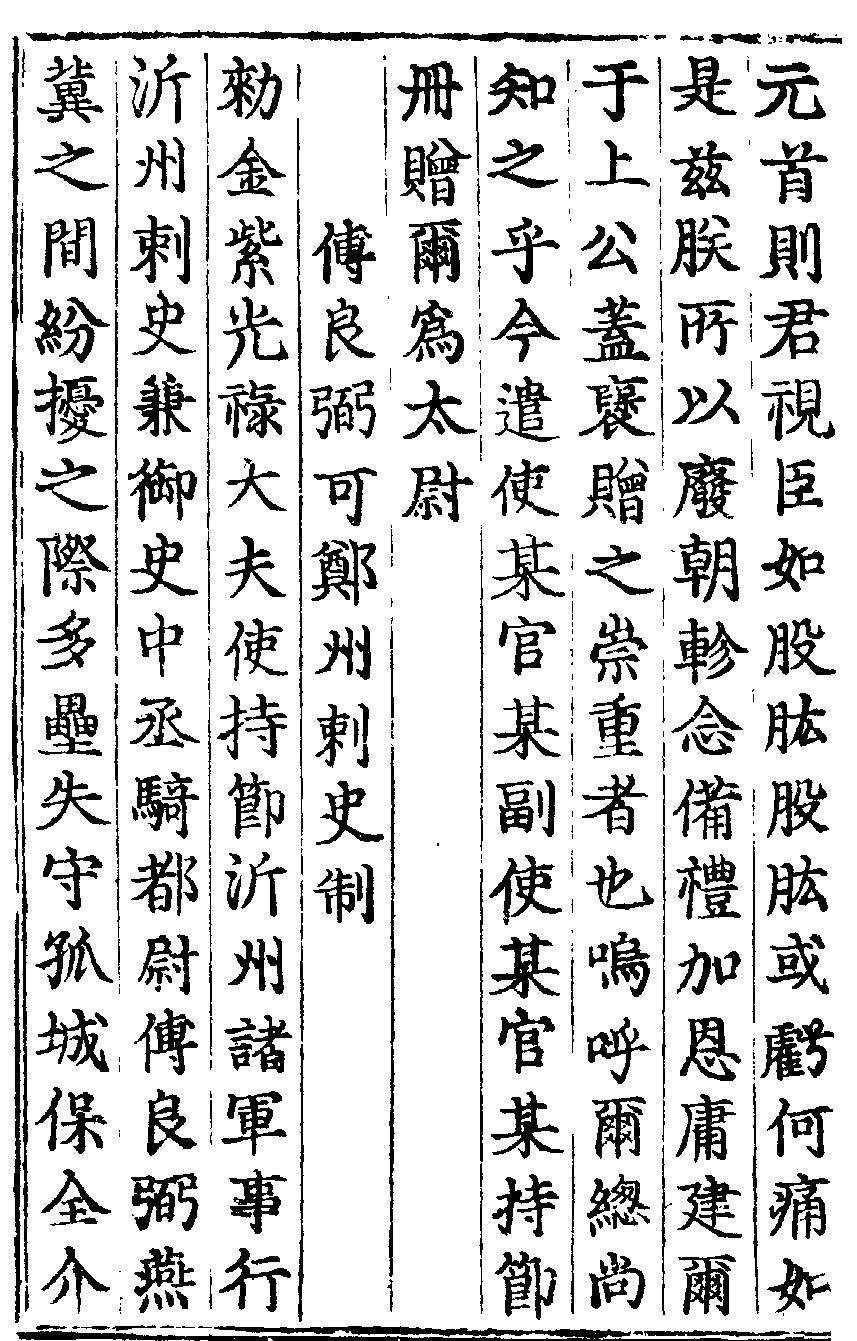 元首則君視臣如股肱股肱或虧何痛如
是兹朕所以廢朝軫念備禮加恩庸建爾
于上公蓋襃贈之崇重者也嗚呼爾緫尚
知之乎今遣使某官某副使某官某持節
冊贈爾爲太尉
傅良弼可鄭州刺史制
勑金紫光祿大夫使持節沂州諸軍事行
沂州刺史兼御史中丞騎都尉傅良弼燕
冀之間紛擾之際多壘失守孤城保全介